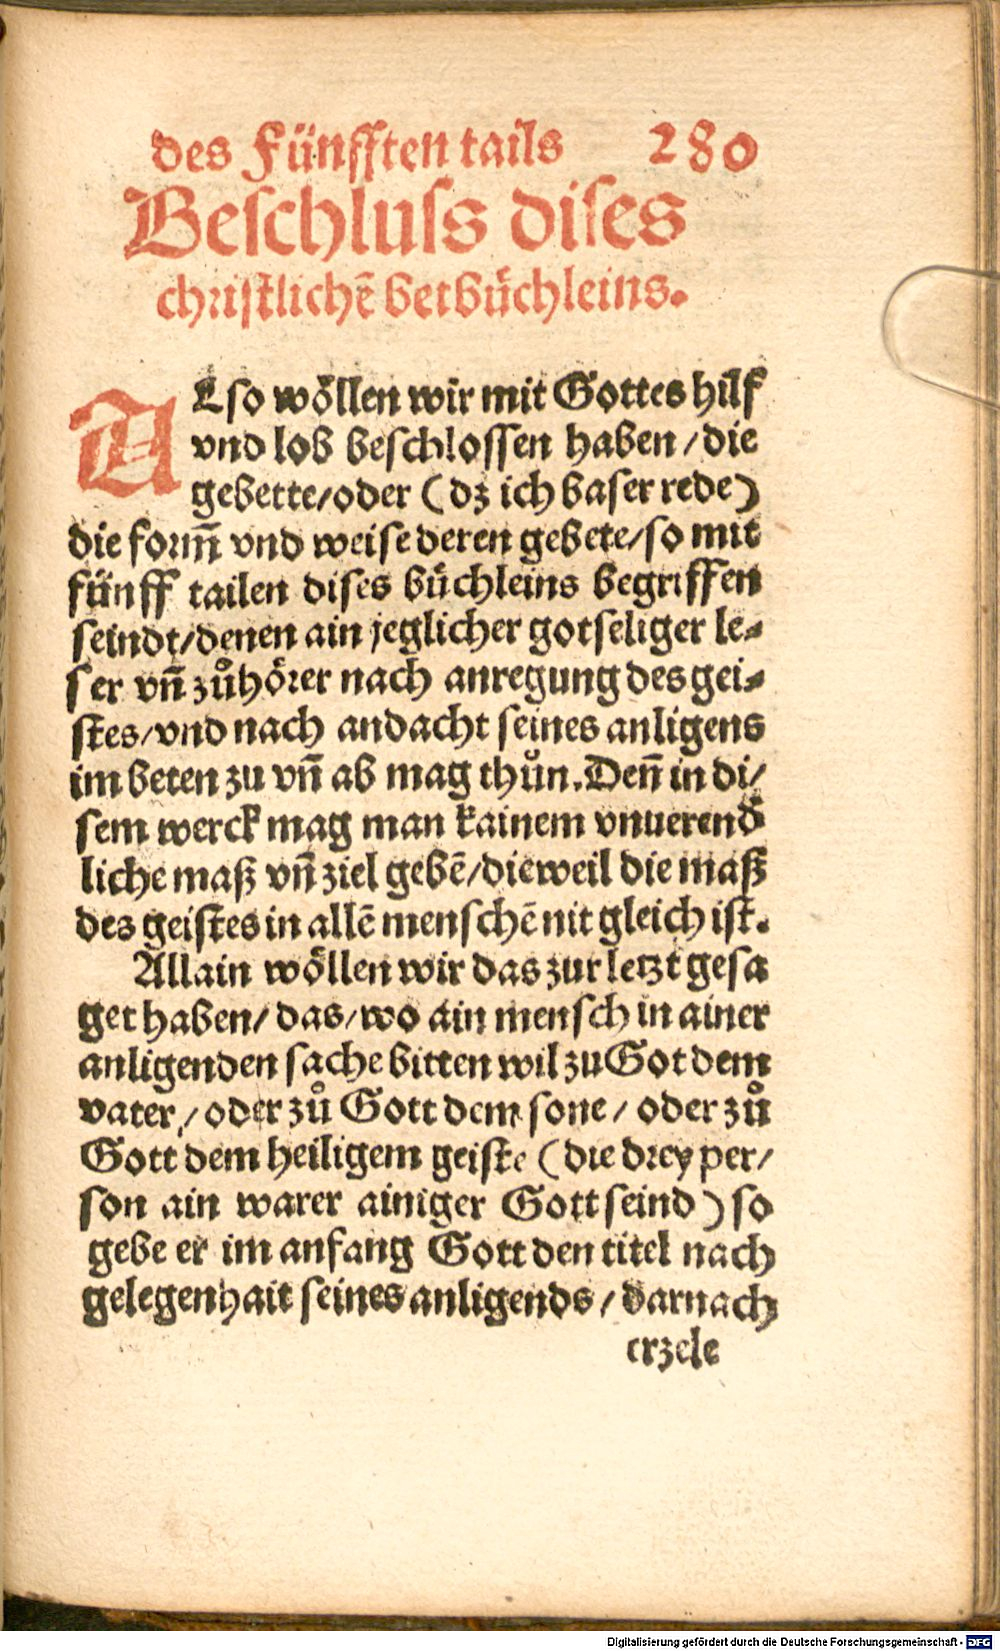 des Fünfften tails 280
Beſchluſs diſes
chriſtlichē betbuͤchleins.
ALſo woͤllen wir mit Gottes hilf
vnd lob beſchloſſen haben/die
gebette/oder (dz ich baſer rede)
die formñ vnd weiſe deren gebete/ſo mit
fünff tailen diſes buͤchleins begriffen
ſeindt/denen ain jeglicher gotſeliger le⸗
ſer vñ zůhoͤrer nach anregung des gei⸗
ſtes/vnd nach andacht ſeines anligens
im beten zu vñ ab mag thůn.Deñ in di/
ſem werck mag man kainem vnuerend
liche maß vñ ziel gebē/dieweil die maß
des geiſtes in allē menſchē nit gleich iſt.
Allain woͤllen wir das zur letzt geſa
get haben/das/wo ain menſch in ainer
anligenden ſache bitten wil zu Got dem
vater/oder zů Gott dem ſone/oder zů
Gott dem heiligem geiſte (die drey per/
ſon ain warer ainiger Gott ſeind) ſo
gebe er im anfang Gott den titel nach
gelegenhait ſeines anligends/darnach
erzele
Digitalisierung gefördert durch die Deutsche Forschungsgemeinschaft - DFG